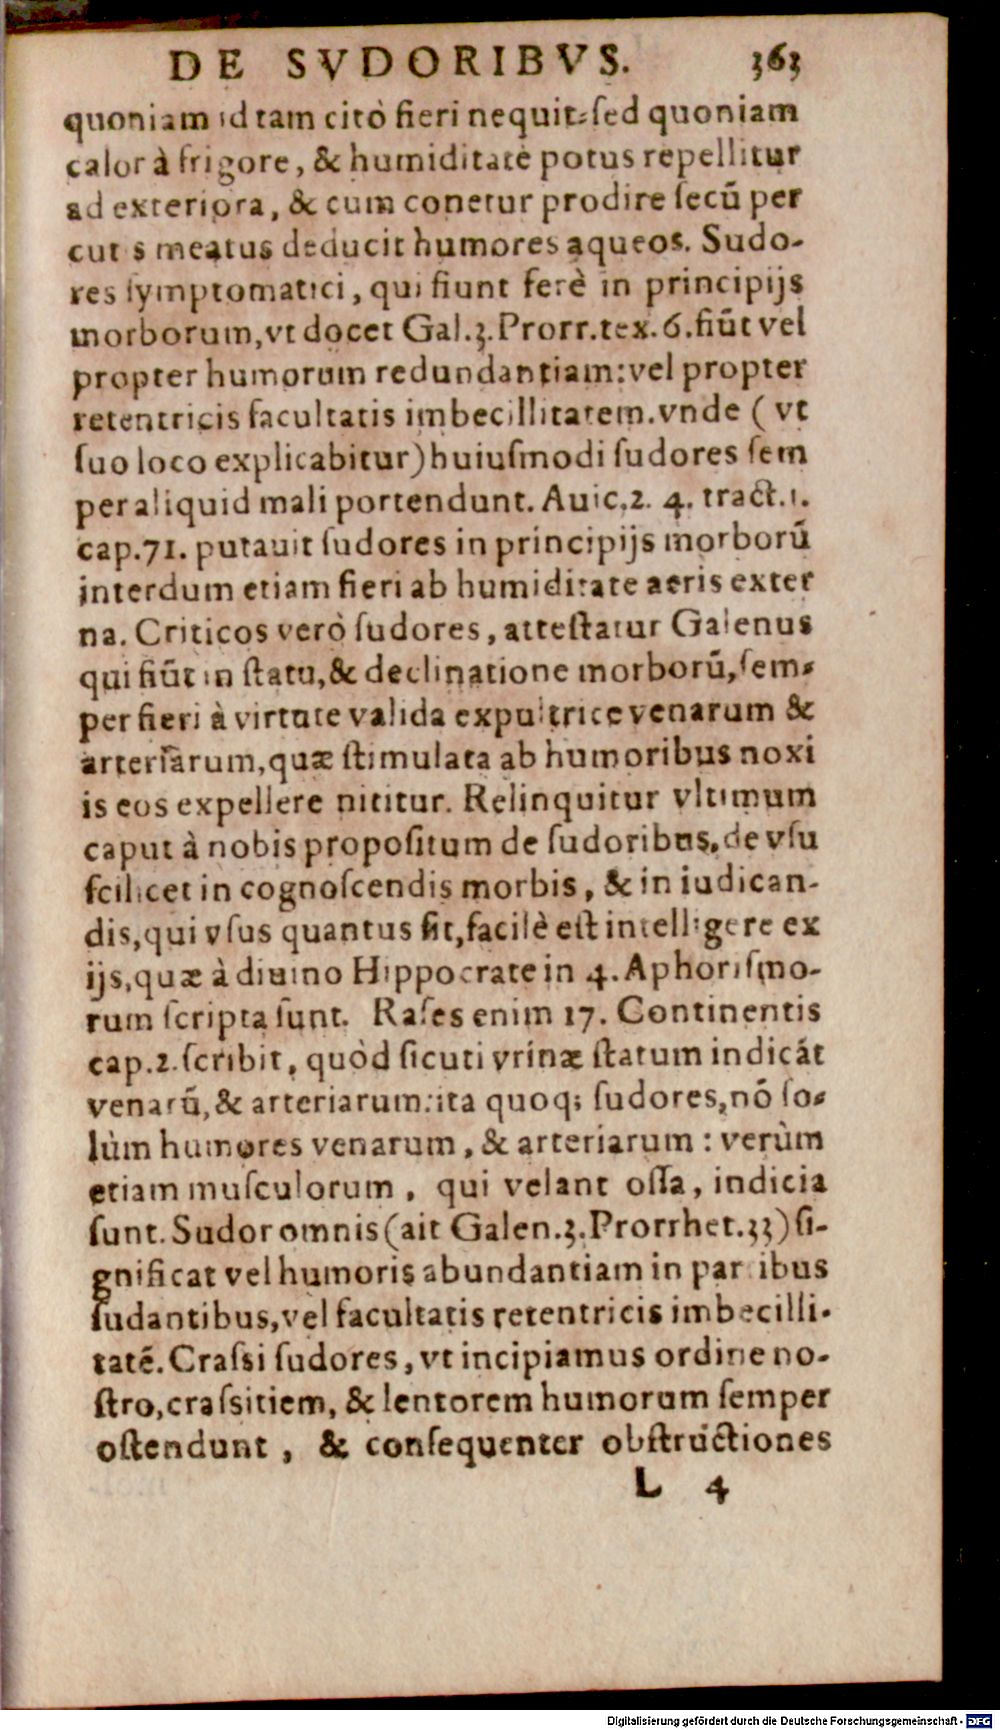 DE SVDORIBVS. 363
quoniam id tam citò fieri nequit: ſed quoniam
calor à frigore, & humiditate potus repellitur
ad exteriora, & cum conetur prodire ſecū per
cutis meatus deducit humores aqueos. Sudo-
res ſymptomatici, qui fiunt ferè in principijs
morborum, vt docet Gal.3.Prorr.tex.6.fiūt vel
propter humorum redundantiam: vel propter
retentricis facultatis imbecillitatem. vnde ( vt
ſuo loco explicabitur) huiuſmodi ſudores ſem
per aliquid mali portendunt. Auic. 2. 4. tract.1.
cap.71. putauit ſudores in principijs morborū
interdum etiam fieri ab humiditate aeris exter
na. Criticos verò ſudores, atteſtatur Galenus
qui fiūt in ſtatu, & declinatione morborū, ſem-
per fieri à virtute valida expultrice venarum &
arteriarum, quæ ſtimulata ab humoribus noxi
is eos expellere nititur. Relinquitur vltimum
caput à nobis propoſitum de ſudoribus, de vſu
ſcilicet in cognoſcendis morbis, & in iudican-
dis, qui vſus quantus ſit, facilè eſt intelligere ex
ijs, quæ à diuino Hippocrate in 4. Aphoriſmo-
rum ſcripta ſunt. Raſes enim 17. Continentis
cap.2. ſcribit, quòd ſicuti vrinæ ſtatum indicāt
venarū, & arteriarum: ita quoq; ſudores, nō ſo-
lùm humores venarum, & arteriarum : verùm
etiam muſculorum, qui velant oſſa, indicia
ſunt. Sudor omnis (ait Galen.3.Prorrhet.33) ſi-
gnificat vel humoris abundantiam in partibus
ſudantibus, vel facultatis retentricis imbecilli-
tatē. Craſsi ſudores, vt incipiamus ordine no-
ſtro, craſsitiem, & lentorem humorum ſemper
oſtendunt, & conſequenter obſtructiones
L 4
Digitalisierung gefördert durch die Deutsche Forschungsgemeinschaft - DFG